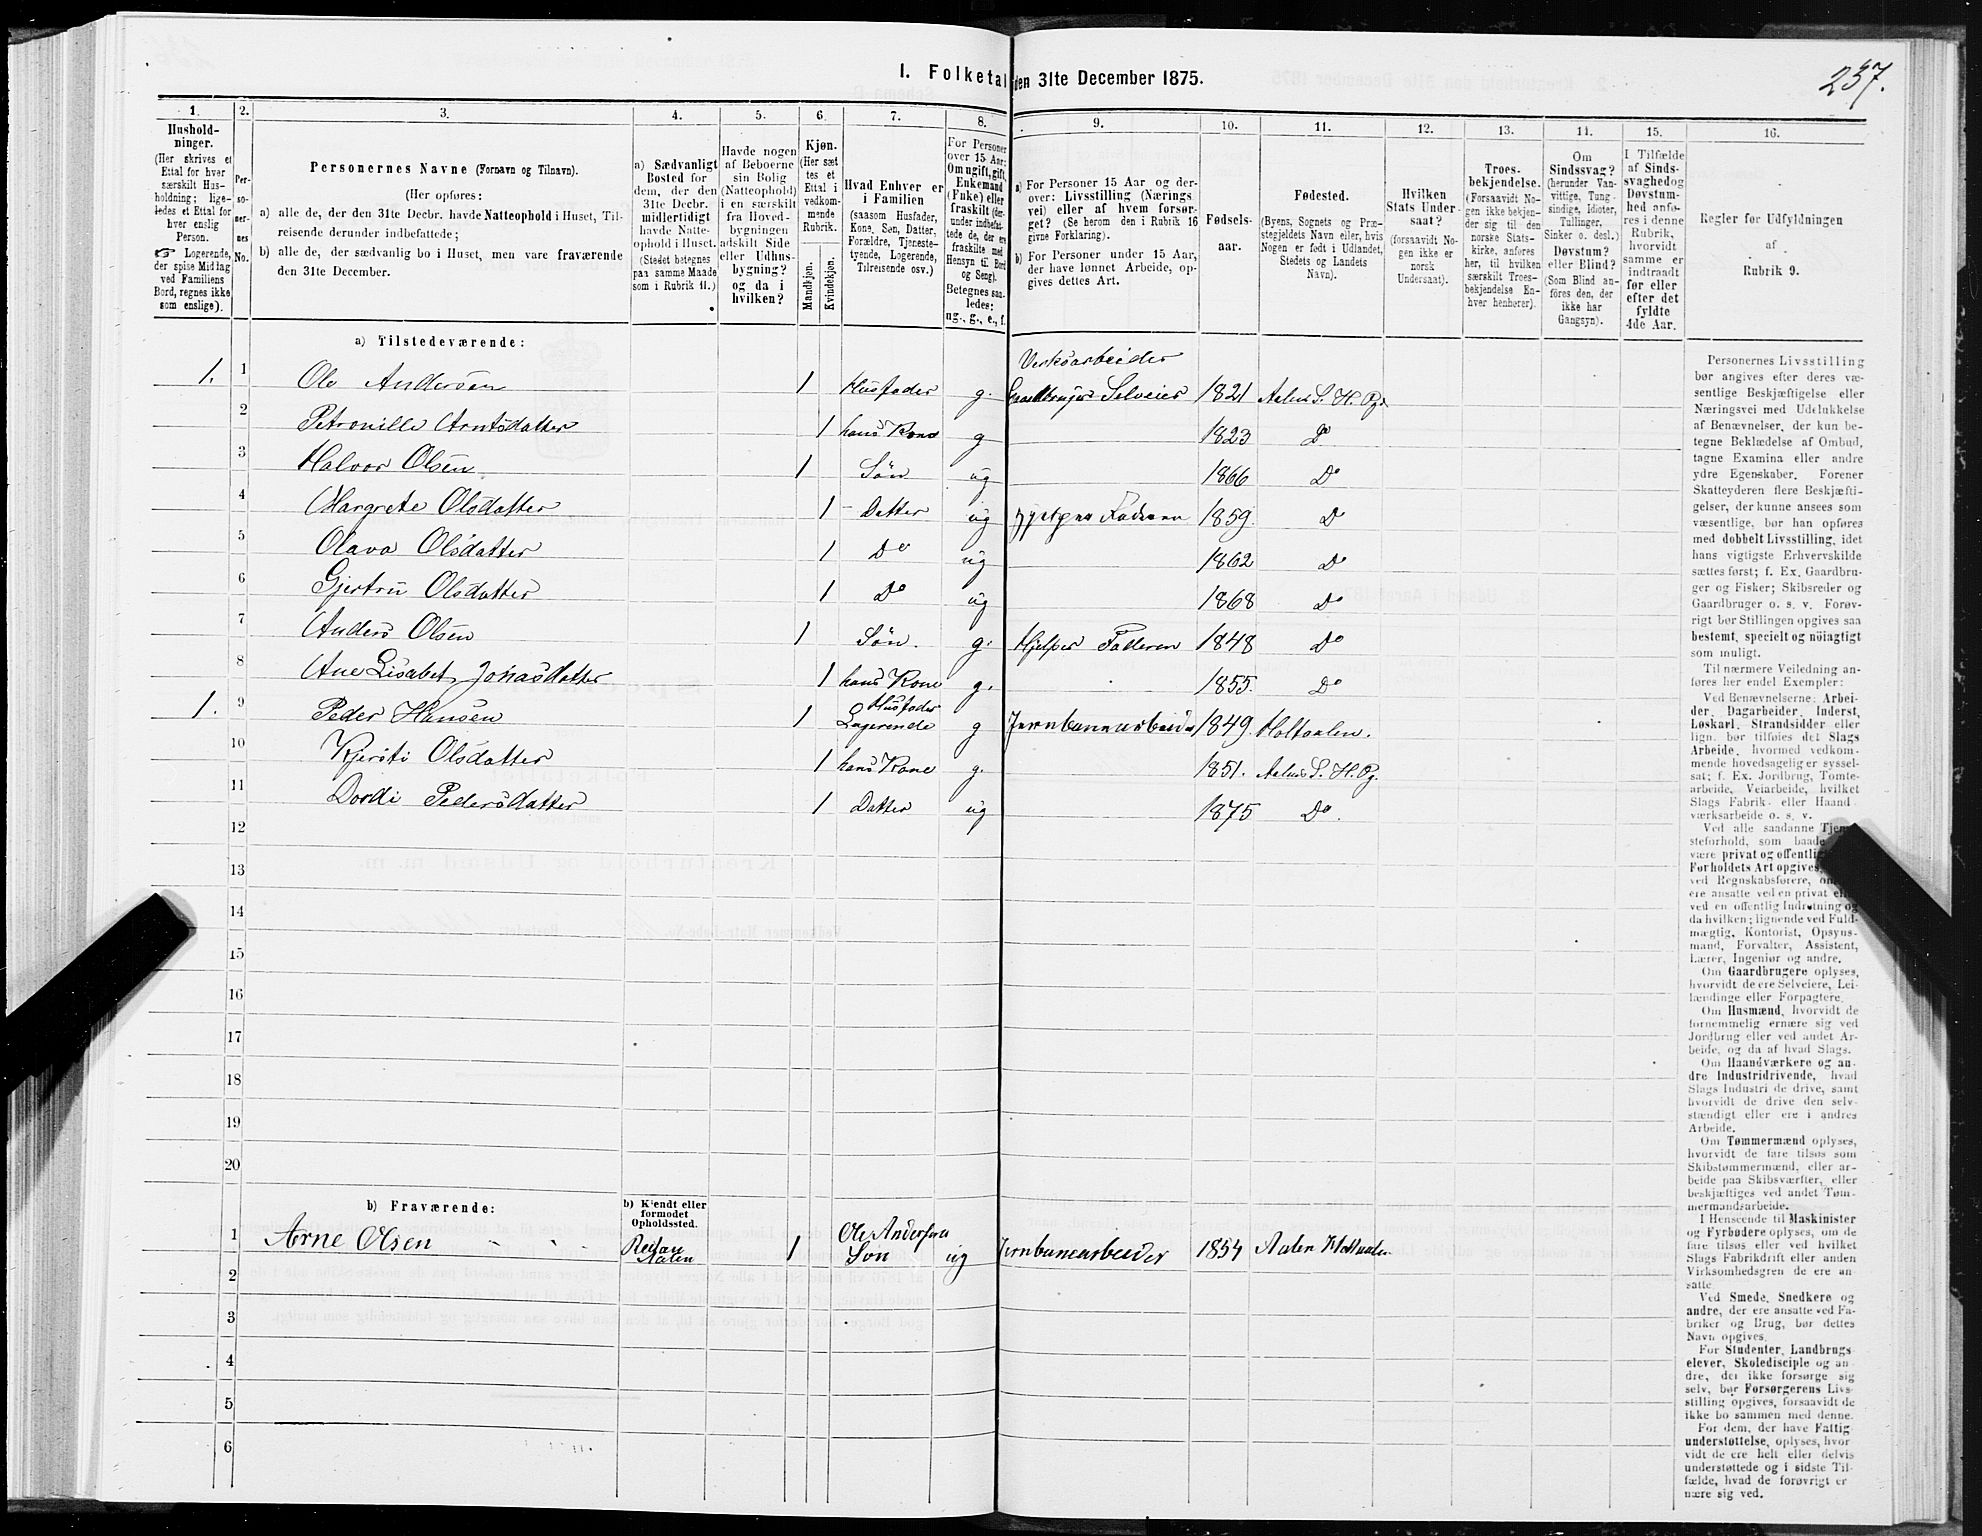 237.
I. Folketal den 31te December 1875.
1. 2. 3. 4. 5. 6. 7. 8. 9. 10. 11. 12. 13. 14. 15. 16.
Hushold-
ninger.
(Her skrives et
Ettal for hver
særskilt Hus-
holdning; lige-
ledes et Ettal for
hver enslig
Person.
☞ Logerende,
der spise Middag
ved Familiens
Bord, regnes ikke
som enslige).
Per-
so-
ner-
nes
No.
Personernes Navne (Fornavn og Tilnavn).
(Her opføres:
a) alle de, der den 31te Decbr. havde Natteophold i Huset, Til-
reisende derunder indbefattede;
b) alle de, der sædvanlig bo i Huset, men vare fraværende
den 31te December.
a) Sædvanligt
Bosted for
dem, der den
31te Decbr.
midlertidigt
havde Natte-
ophold i Huset.
(Stedet betegnes
paa samme Maade
som i Rubrik 11.)
Havde nogen
af Beboerne
sin Bolig
(Natteophold)
i en særskilt
fra Hoved-
bygningen
adskilt Side
eller Udhus-
bygning?
og da i
hvilken?
Kjøn.
(Her sæt-
tes et
Ettal i
vedkom-
mende
Rubrik.
Mandkjøn.
Kvindekjøn.
Hvad Enhver er
i Familien
(saasom Husfader,
Kone, Søn, Datter,
Forældre, Tjeneste-
tyende, Logerende,
Tilreisende osv.)
For Personer
over 15 Aar:
Om ugift, gift,
Enkemand
(Enke) eller
fraskilt (der-
under indbefat-
tede de, der ere
fraskilte med
Hensyn til Bord
og Seng).
Betegnes saa-
ledes:
ug., g., e., f.
a) For Personer 15 Aar og der-
over: Livsstilling (Nærings
vei) eller af hvem forsør-
get? (Se herom den i Rubrik 16
givne Forklaring).
b) For Personer under 15 Aar,
der have lønnet Arbeide, op-
gives dettes Art.
Fødsels-
aar.
Fødested.
(Byens, Sognets og Præ-
stegjeldets Navn eller, hvis
Nogen er født i Udlandet,
Stedets og Landets
Navn).
Hvilken
Stats Under-
saat?
(forsaavidt No-
gen ikke er
norsk
Undersaat).
Troes-
bekjendelse.
(Forsaavidt No-
gen ikke bekjen-
der sig til den
norske Stats-
kirke, anføres
her, til hvilken
særskilt Troes-
bekjendelse En-
hver henhører).
Om
Sindssvag?
(herunder Van-
vittige, Tung-
sindige, Idioter,
Tullinger,
Sinker o. desl.)
Døvstum?
eller Blind?
(Som Blind an-
føres den, der
ikke har
Gangsyn).
I Tilfælde
af Sinds-
svaghed og
Døvstum-
hed anfø-
res i denne
Rubrik,
hvorvidt
samme er
indtraadt
før eller
efter det
fyldte
4de Aar.
Regler for Udfyldningen
af
Rubrik 9.
a) Tilstedeværende:
Verksarbeider
1. 1 Ole Andersen 1 Husfader g. Gaardbruger Selveier 1821 Aalens S. H. Pg.
2 Petronille Arntsdatter 1 hans Kone g 1823 Do
3 Halvor Olsen 1 Søn ug 1866 Do
4 Margrete Olsdatter 1 Datter ug Hjelper Faderen 1859 Do
5 Olava Olsdatter 1 Do ug 1862 Do
6 Gjertru Olsdatter 1 Do ug 1868 Do
7 Anders Olsen 1 Søn. g. Hjelper Faderen 1848 Do
8 Ane Lisabet Jonasdatter 1 hans Kone g. 1855. Do
Husfader
1. 9 Peder Hansen 1 Logerende g Jernbanearbeider 1849. Holtaalen.
10 Kjersti Olsdatter 1 hans Kone g. 1851. Aalens S. H. Pg.
11 Dordi Pedersdatter 1 Datter ug 1875 Do.
12
13
14
15
16
17
18
19
20
b) Fraværende:
b) Kjendt eller
formodet
Opholdssted.
Ole Andersens
1 Arne Olsen Reitan Aalen 1 Søn ug Jernbanearbeider 1854 Aalen Holtaalen
2
3
4
5
6
Personernes Livsstilling
bør angives efter deres væ-
sentlige Beskjæftigelse eller
Næringsvei med Udelukkelse
af Benævnelser, der kun be-
tegne Beklædelse af Ombud,
tagne Examina eller andre
ydre Egenskaber. Forener
Skatteyderen flere Beskjæfti-
gelser, der kunne ansees som
væsentlige, bør han opføres
med dobbelt Livsstilling, idet
hans vigtigste Erhvervskilde
sættes først; f. Ex. Gaardbru-
ger og Fisker; Skibsreder og
Gaardbruger o. s. v. Forøv-
rigt bør Stillingen opgives saa
bestemt, specielt og nöiagtigt
som muligt.
Til nærmere Veiledning an-
føres her endel Exempler:
Ved Benævnelserne: Arbei-
der, Dagarbeider, Inderst,
Løskarl, Strandsidder eller
lign. bør tilføies det Slags
Arbeide, hvormed vedkom-
mende hovedsagelig er syssel-
sat; f. Ex. Jordbrug, Tomte-
arbeide, Veiarbeide, hvilket
Slags Fabrik- eller Haand-
værksarbeide o. s. v.
Ved alle saadanne Tjene-
steforhold, som baade
være privat og offentlig
Forholdets Art opgives,
ved Regnskabsførere, om
ere ansatte ved en privat eller
ved en offentlig Indretning og
da hvilken; lignende ved Fuld-
mægtig, Kontorist, Opsyns-
mand, Forvalter, Assistent,
Lærer, Ingeniør og andre.
Om Gaardbrugere oplyses,
hvorvidt de ere Selveiere, Lei-
lændinge eller Forpagtere.
Om Husmænd, hvorvidt de
fornemmelig ernære sig ved
Jordbrug eller ved andet Ar-
beide, og da af hvad Slags.
Om Haandværkere og an-
dre Industridrivende, hvad
Slags Industri de drive, samt
hvorvidt de drive den selv-
stændigt eller ere i andres
Arbeide.
Om Tømmermænd oplyses,
hvorvidt de fare tilsøs som
Skibstømmermænd, eller ar-
beide paa Skibsværfter, eller
beskjæftiges ved andet Tøm-
mermandsarbeide.
I Henseende til Maskinister
og Fyrbødere oplyses, om de
fare tilsøs eller ved hvilket
Slags Fabrikdrift eller anden
Virksomhedsgren de ere an-
satte
Ved Smede, Snedkere og
andre, der ere ansatte ved Fa-
briker og Brug, bør dettes
Navn opgives.
For Studenter, Landbrugs-
elever, Skoledisciple og an-
dre, der ikke forsørge sig
selv, bør Forsørgerens Livs-
stilling opgives, forsaavidt de
ikke bo sammen med denne.
For dem, der have Fattig-
understøttelse, oplyses, hvor-
vidt de ere helt eller delvis
understøttede og i sidste Til-
fælde, hvad de forøvrigt er
nære sig ved.